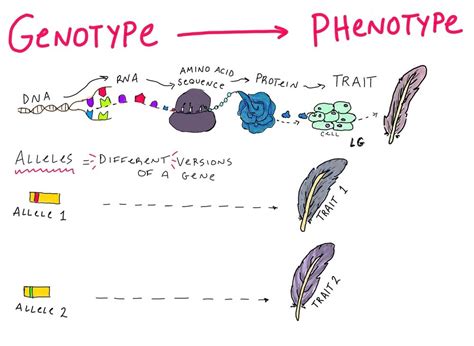 GENOTYPE PHENOTYPE
DNA RNA AMINO ACID SEQUENCE PROTEIN TRAIT
CELL
LG
ALLELES = DIFFERENT VERSIONS
OF A GENE
ALLELE 1
TRAIT 1
ALLELE 2
TRAIT 2